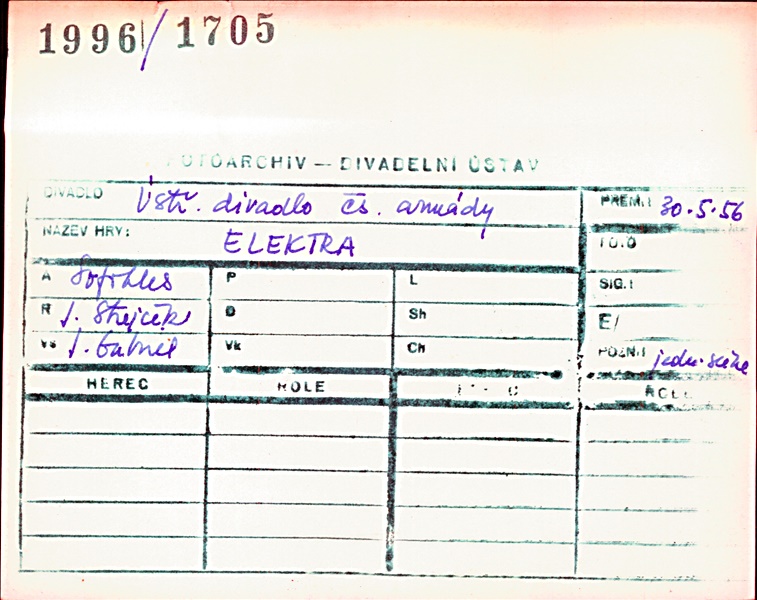 1996/1705
FOTOARCHIV — DIVADELNÍ ÚSTAV
DIVADLO Ústř. divadlo čs. armády
PREM.: 30.5.56
NÁZEV HRY: ELEKTRA
FOTO
A Sofokles P L
SIG.:
R J. Strejček D Sh
E/
Vs J. Gabriel Vk Ch
POZN.:
HEREC ROLE ROLE